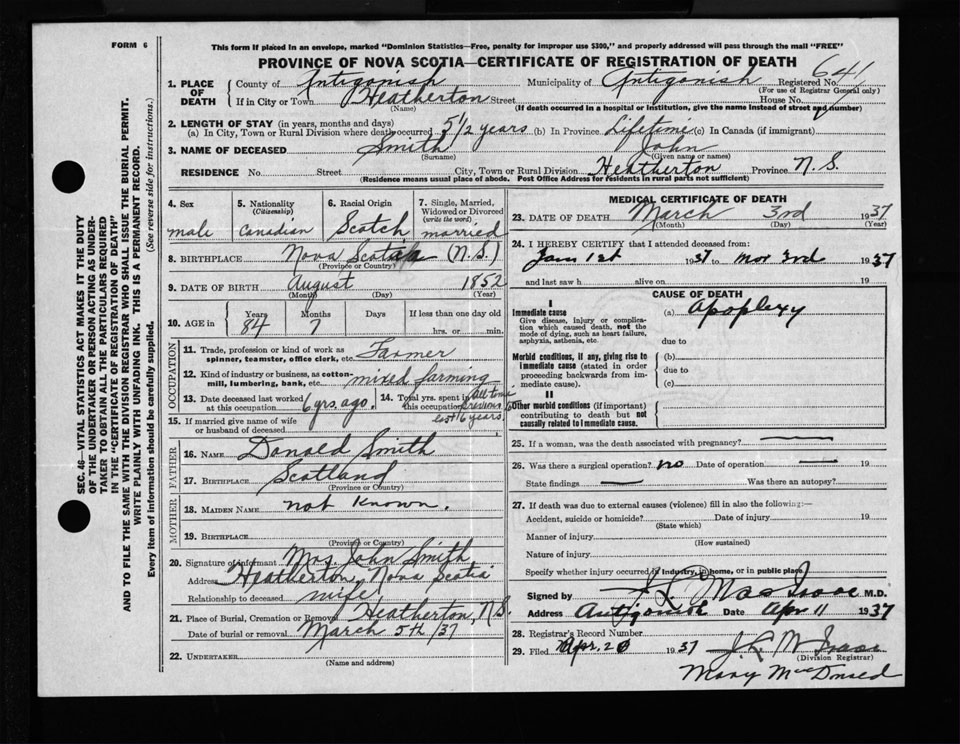 FORM 6
This form if placed in an envelope, marked "Dominion Statistics—Free, penalty for improper use $300," and properly addressed will pass through the mail "FREE"
PROVINCE OF NOVA SCOTIA—CERTIFICATE OF REGISTRATION OF DEATH
1. PLACE OF DEATH
County of Antigonish Municipality of Antigonish Registered No. 641
(For use of Registrar General only)
If in City or Town Heatherton Street House No.
(Name) (If death occurred in a hospital or institution, give the name instead of street and number)
2. LENGTH OF STAY (in years, months and days)
(a) In City, Town or Rural Division where death occurred 5 1/2 years (b) In Province Lifetime (c) In Canada (if immigrant)
3. NAME OF DECEASED Smith John
(Surname) (Given name or names)
RESIDENCE No. Street City, Town or Rural Division Heatherton Province N.S.
(Residence means usual place of abode. Post Office Address for residents in rural parts not sufficient)
4. Sex 5. Nationality (Citizenship) 6. Racial Origin 7. Single, Married, Widowed or Divorced (write the word)
male Canadian Scotch married
8. BIRTHPLACE Nova Scotia (N.S.)
(Province or Country)
9. DATE OF BIRTH August 1852
(Month) (Day) (Year)
10. AGE in Years Months Days If less than one day old
84 7 hrs. or min.
OCCUPATION
11. Trade, profession or kind of work as spinner, teamster, office clerk, etc. Farmer
12. Kind of industry or business, as cotton-mill, lumbering, bank, etc. mixed farming
13. Date deceased last worked at this occupation 6 yrs. ago.
14. Total yrs. spent in this occupation All time previous to last 6 years.
15. If married give name of wife or husband of deceased
FATHER
16. NAME Donald Smith
17. BIRTHPLACE Scotland
(Province or Country)
MOTHER
18. MAIDEN NAME not known.
19. BIRTHPLACE
(Province or Country)
20. Signature of informant Mrs. John Smith
Address Heatherton, Nova Scotia
Relationship to deceased wife
21. Place of Burial, Cremation or Removal Heatherton, N.S.
Date of burial or removal March 5th /37
22. UNDERTAKER
(Name and address)
MEDICAL CERTIFICATE OF DEATH
23. DATE OF DEATH March 3rd 1937
(Month) (Day) (Year)
24. I HEREBY CERTIFY that I attended deceased from:
Jan 1st 1937 to Mar 3rd 1937
and last saw h alive on 19
CAUSE OF DEATH
I
Immediate cause (a) Apoplexy
Give disease, injury or complication which caused death, not the mode of dying, such as heart failure, asphyxia, asthenia, etc.
due to
Morbid conditions, if any, giving rise to immediate cause (stated in order proceeding backwards from immediate cause).
(b)
due to
(c)
II
Other morbid conditions (if important) contributing to death but not causally related to immediate cause.
25. If a woman, was the death associated with pregnancy? —
26. Was there a surgical operation? no Date of operation — 19
State findings — Was there an autopsy?
27. If death was due to external causes (violence) fill in also the following:—
Accident, suicide or homicide? Date of injury 19
(State which)
Manner of injury
(How sustained)
Nature of injury
Specify whether injury occurred in industry, in home, or in public place
Signed by MacIsaac M.D.
Address Antigonish Date Apr 11 1937
28. Registrar's Record Number
29. Filed Apr. 20 1937
(Division Registrar)
Mary MacDonald
SEC. 46—VITAL STATISTICS ACT MAKES IT THE DUTY
OF THE UNDERTAKER OR PERSON ACTING AS UNDER-
TAKER TO OBTAIN ALL THE PARTICULARS REQUIRED
IN THE "CERTIFICATE OF REGISTRATION OF DEATH"
AND TO FILE THE SAME WITH THE DIVISION REGISTRAR WHO SHALL ISSUE THE BURIAL PERMIT.
WRITE PLAINLY WITH UNFADING INK. THIS IS A PERMANENT RECORD.
Every item of information should be carefully supplied. (See reverse side for instructions.)